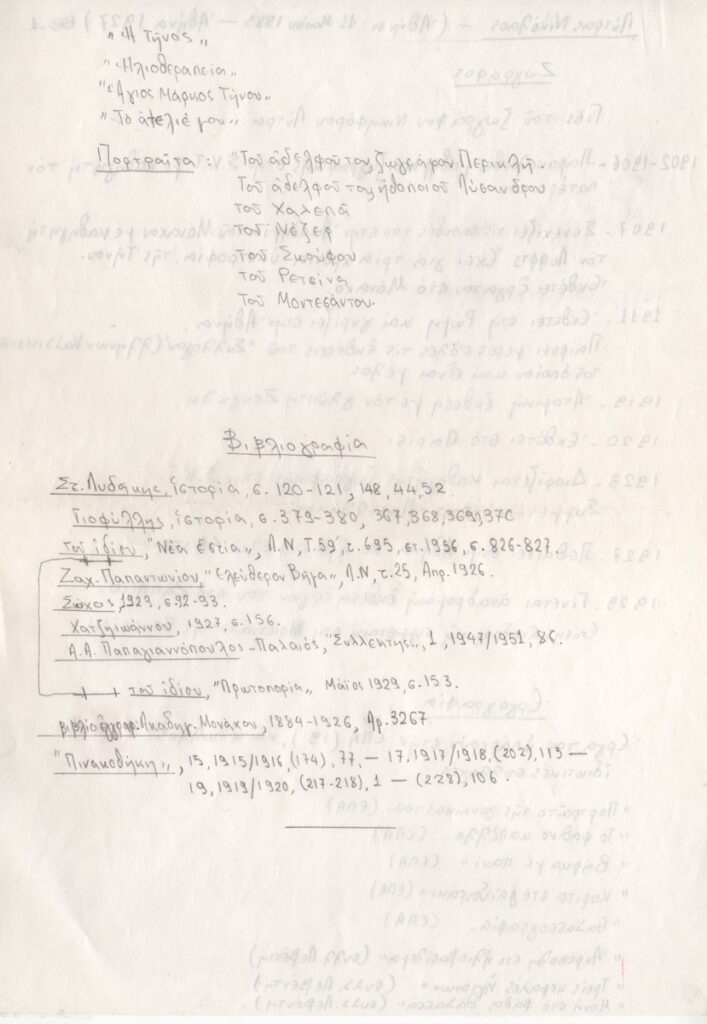 "Η Τήνος"
"Ηλιοθεραπεία"
"Άγιος Μάρκος Τήνου"
"Το ατελιέ μου"
Πορτραίτα: Τοῦ ἀδελφοῦ του, ζωγράφου Περικλῆ.
Τοῦ ἀδελφοῦ του, ἠθοποιοῦ Λύσανδρου
τοῦ Χαλεπᾶ
τοῦ Νέζερ
τοῦ Σκούφου
τοῦ Ρετσίνα
τοῦ Μοντεσάντου.
Βιβλιογραφία
Στ. Λυδάκης, ἱστορία, σ. 120-121, 148, 44, 52.
Γιοφύλλης, ἱστορία, σ. 379-380, 367, 368, 369, 370
τοῦ ἰδίου, "Νέα Εστία", Λ.Ν, Τ.59, τ. 695, ετ. 1956, σ. 826-827.
Ζαχ. Παπαντωνίου, "Ελεύθερον Βῆμα", Λ.Ν, τ.25, Απρ. 1926.
Σῶχος, 1929, σ.92-93.
Χατζηιωάννου, 1927, σ.156.
Α.Α. Παπαγιαννόπουλος-Παλαιός, "Συλλέκτης", 1, 1947/1951, 86.
τοῦ ἰδίου, "Πρωτοπορία" Μάϊος 1929, σ.153.
Ακαδημ. Μονάχου, 1884-1926, Αρ. 3267.
"Πινακοθήκη", 15, 1915/1916, (174), 77, — 17, 1917/1918, (202), 113 —
19, 1919/1920, (217-218), 1 — (228), 106.